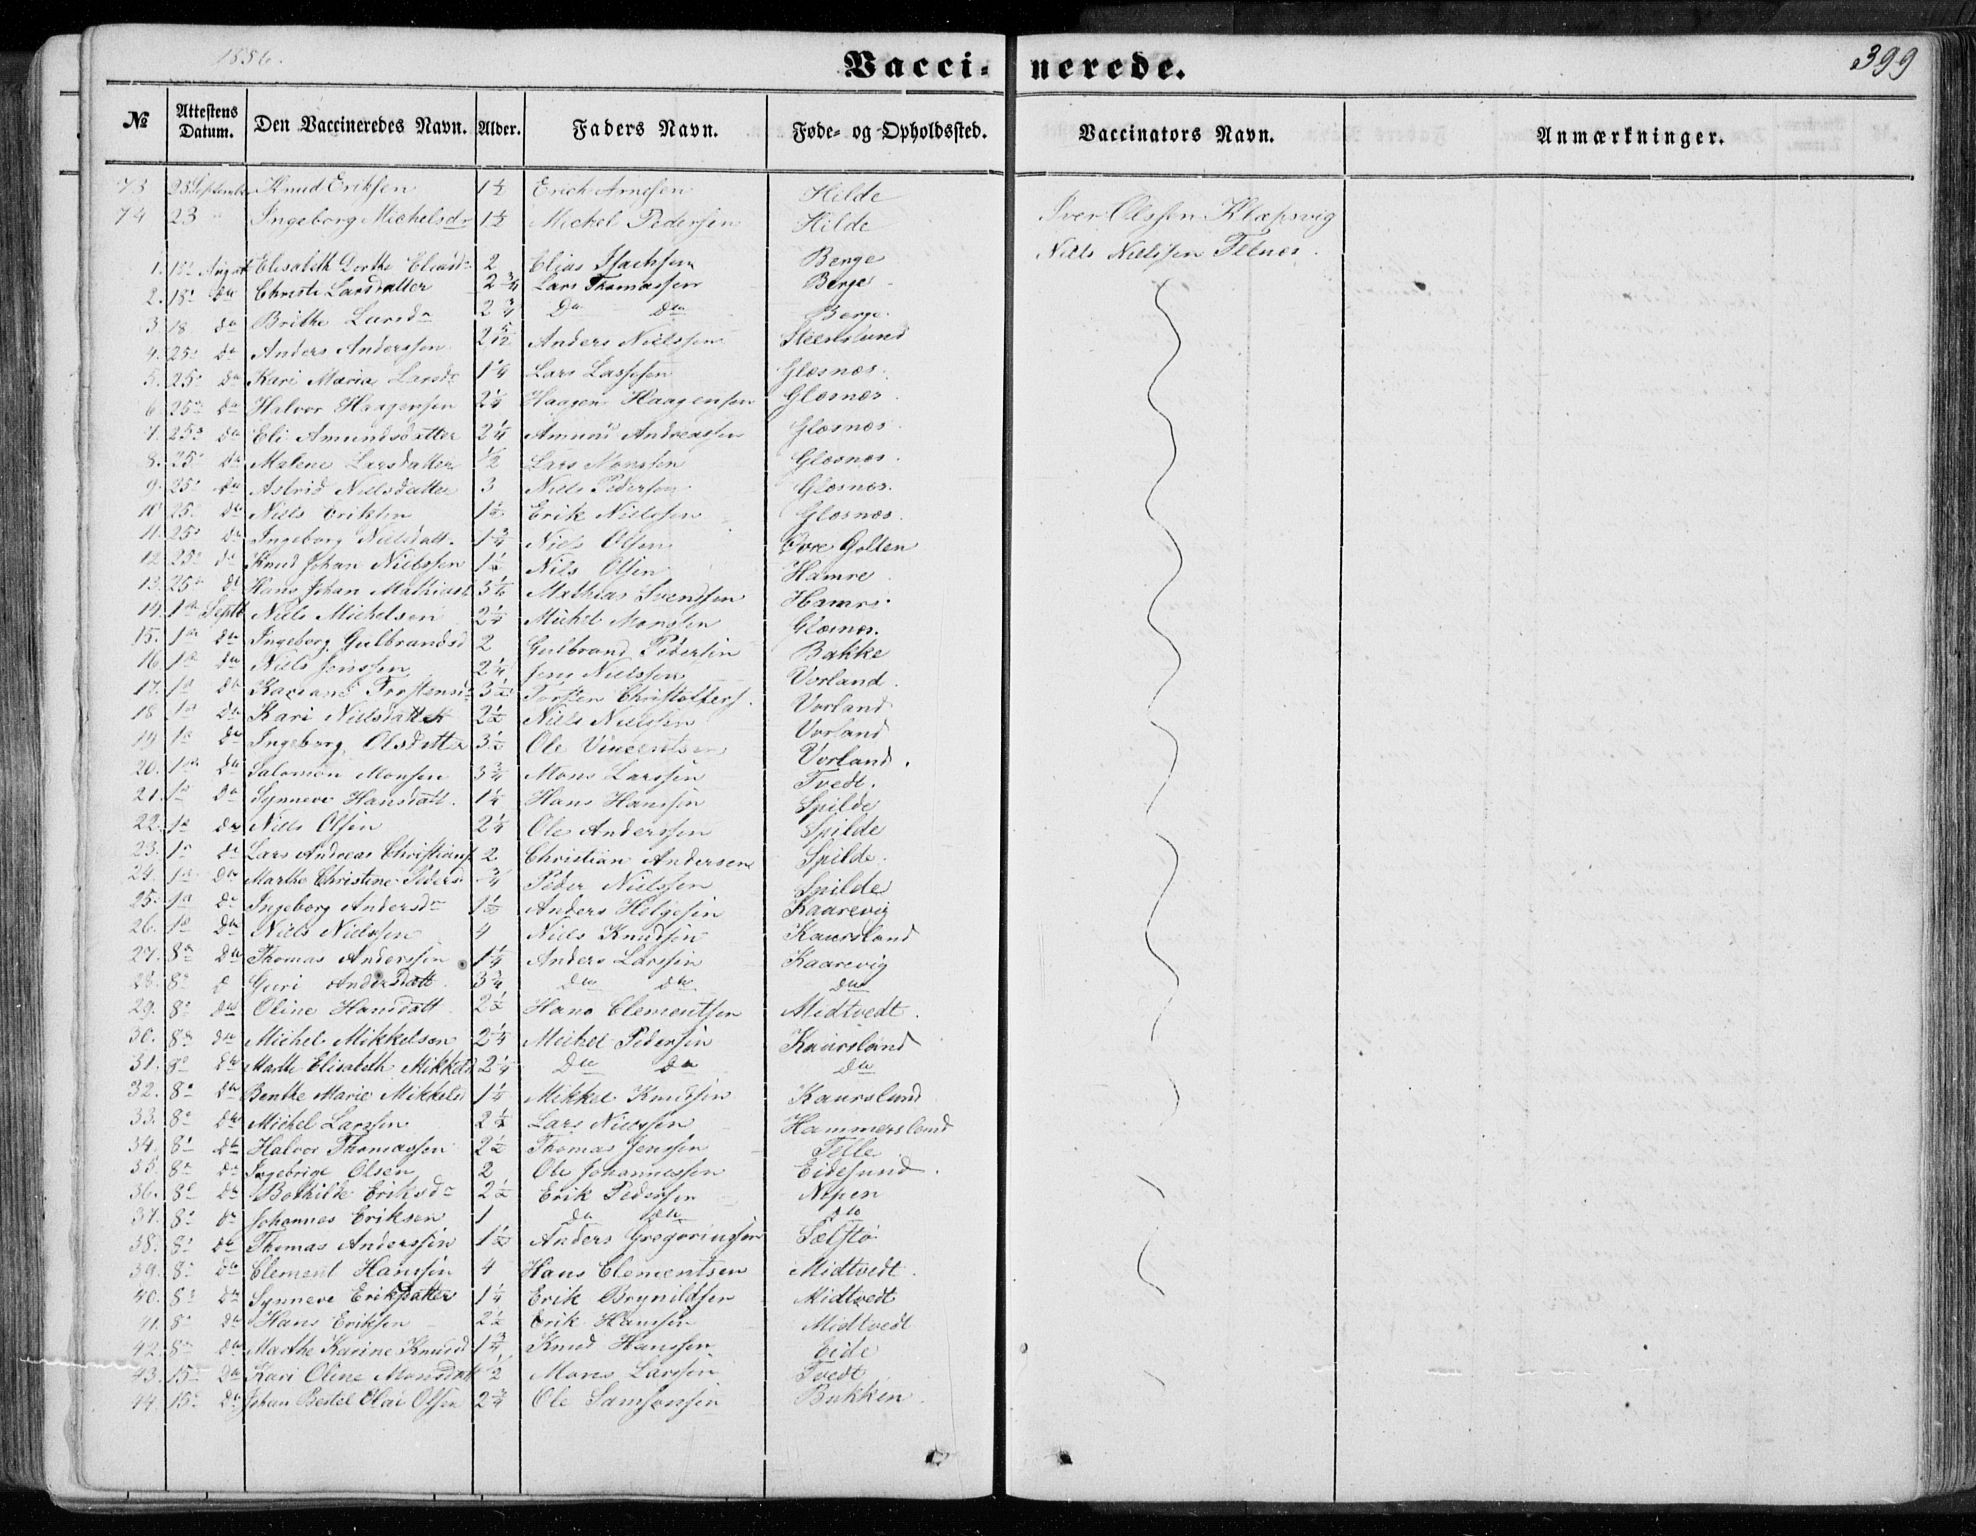 1856.
Vacci- nerede.
399
№ Attestens Datum. Den Vaccineredes Navn. Alder. Faders Navn. Føde- og Opholdssted. Vaccinators Navn. Anmærkninger.
73 23 September Knud Eriksen 1½ Erich Arnesen Hilde
74 23 " Ingeborg Michelsdr 1½ Michel Pedersen Hilde Iver Olssen Klepsvig
1. 18 August Elisabeth Dorthe Eliasdr 2 Elias Isachsen Berge Niels Nielssen Telnes.
2. 18 da Christi Larsdatter 2¾ Lars Thomassen Berge
3 18 da Brithe Larsdr 2¾ Da Da Berge.
4. 25 da Anders Anderssen 2 5/12 Anders Nielssen Steenslund
5. 25 da Kari Maria Larsdr 1¼ Lars Lassesen Glesnes.
6. 25 da Halvor Haagensen 2¼ Haagen Haagensen Glesnes.
7. 25 da Eli Amundsdatter 2¼ Amund Andreassen Glesnes.
8. 25 da Malene Larsdatter ½ Lars Monsen Glesnes.
9. 25 da Astrid Nielsdatter 3 Niels Pedersen Glesnes.
10 25 da Niels Eriksen 1½ Erik Nielssen Glesnes.
11. 25 da Ingeborg Nielsdatt. 1¾ Niels Olsen Øvre Golten
12 25 da Knud Johan Nielssen 1½ Nils Olsen Hamre
13. 25 da Hans Johan Mathiass Mathias Svendsen Hamre.
14. 1 Septb Niels Michelsen 2¼ Michel Monsen Glesnes.
15. 1 da Ingeborg Gulbrandsd 2 Gulbrand Pedersen Bakke
16 1 da Niels Jenssen 2¼ Jens Nielssen Vorland.
17. 1 da Torstensdr 3½ Torsten Christoffers. Vorland
18 1 da Kari Nielsdatter 2½ Niels Nielsen Vorland
19 1 da Ingeborg Olsdatter 3½ Ole Vincentsen Vorland.
20. 1 da Salomon Monsen 3¾ Mons Larssen Tvedt.
21. 1 da Synneve Hansdatt. 1¼ Hans Hanssen Spilde
22. 1 da Niels Olsen 2¼ Ole Anderssen Spilde
23. 1 da Lars Andreas Christians 2 Christian Andersen Spilde.
24. 1 da Marthe Christine Peders ¾ Peder Nielssen Spilde
25. 1 da Ingeborg Andersdr 1½ Anders Helgesen Kaarevig
26. 1 da Niels Nielssen 4 Niels Knudsen Kaursland
27. 8 da Thomas Anderssen 1¼ Anders Larssen Kaarevig
28. 8 d Guri Andersdatt. 3¾ da da da
29. 8 da Oline Hansdatt. 2½ Hans Clementsen Midtvedt.
30. 8 da Michel Mikkelsen 2¼ Michel Pedersen Kaursland
31. 8 da Marthe Elisabeth Mikkels 2¼ Da Da Da
32. 8 da Benthe Marie Mikkelsd 1¼ Mikkel Knudsen Kaursland
33. 8 da Michel Larssen Lars Nielssen Hammersland
34. 8 da Halvor Thomassen 2½ Thomas Jenssen Telle
35. 8 da Ingebrigt Olsen 2 Ole Johannessen Eidesund.
36. 8 da Bothilde Eriksdr 2½ Erik Pedersen Nepen
37. 8 da Johannes Eriksen 1 da da da
38. 8 da Thomas Anderssen 1½ Anders Gregoriussen Sælstø
39. 8 da Clement Hanssen 4 Hans Clementsen Midtvedt.
40. 8 da Synneve Eriksdatter 1¼ Erik Brynildsen Midtvedt
41. 8 da Hans Eriksen 2½ Erik Hanssen Midtvedt
42. 8 da Marthe Karine Knudsd 1¾ Knud Hanssen Eide
43. 15 da Kari Oline Monsdatt ½ Mons Larssen Tvedt
44 15 da Johan Bertel Elai Olsen 2¾ Ole Samsonsen Bukken.